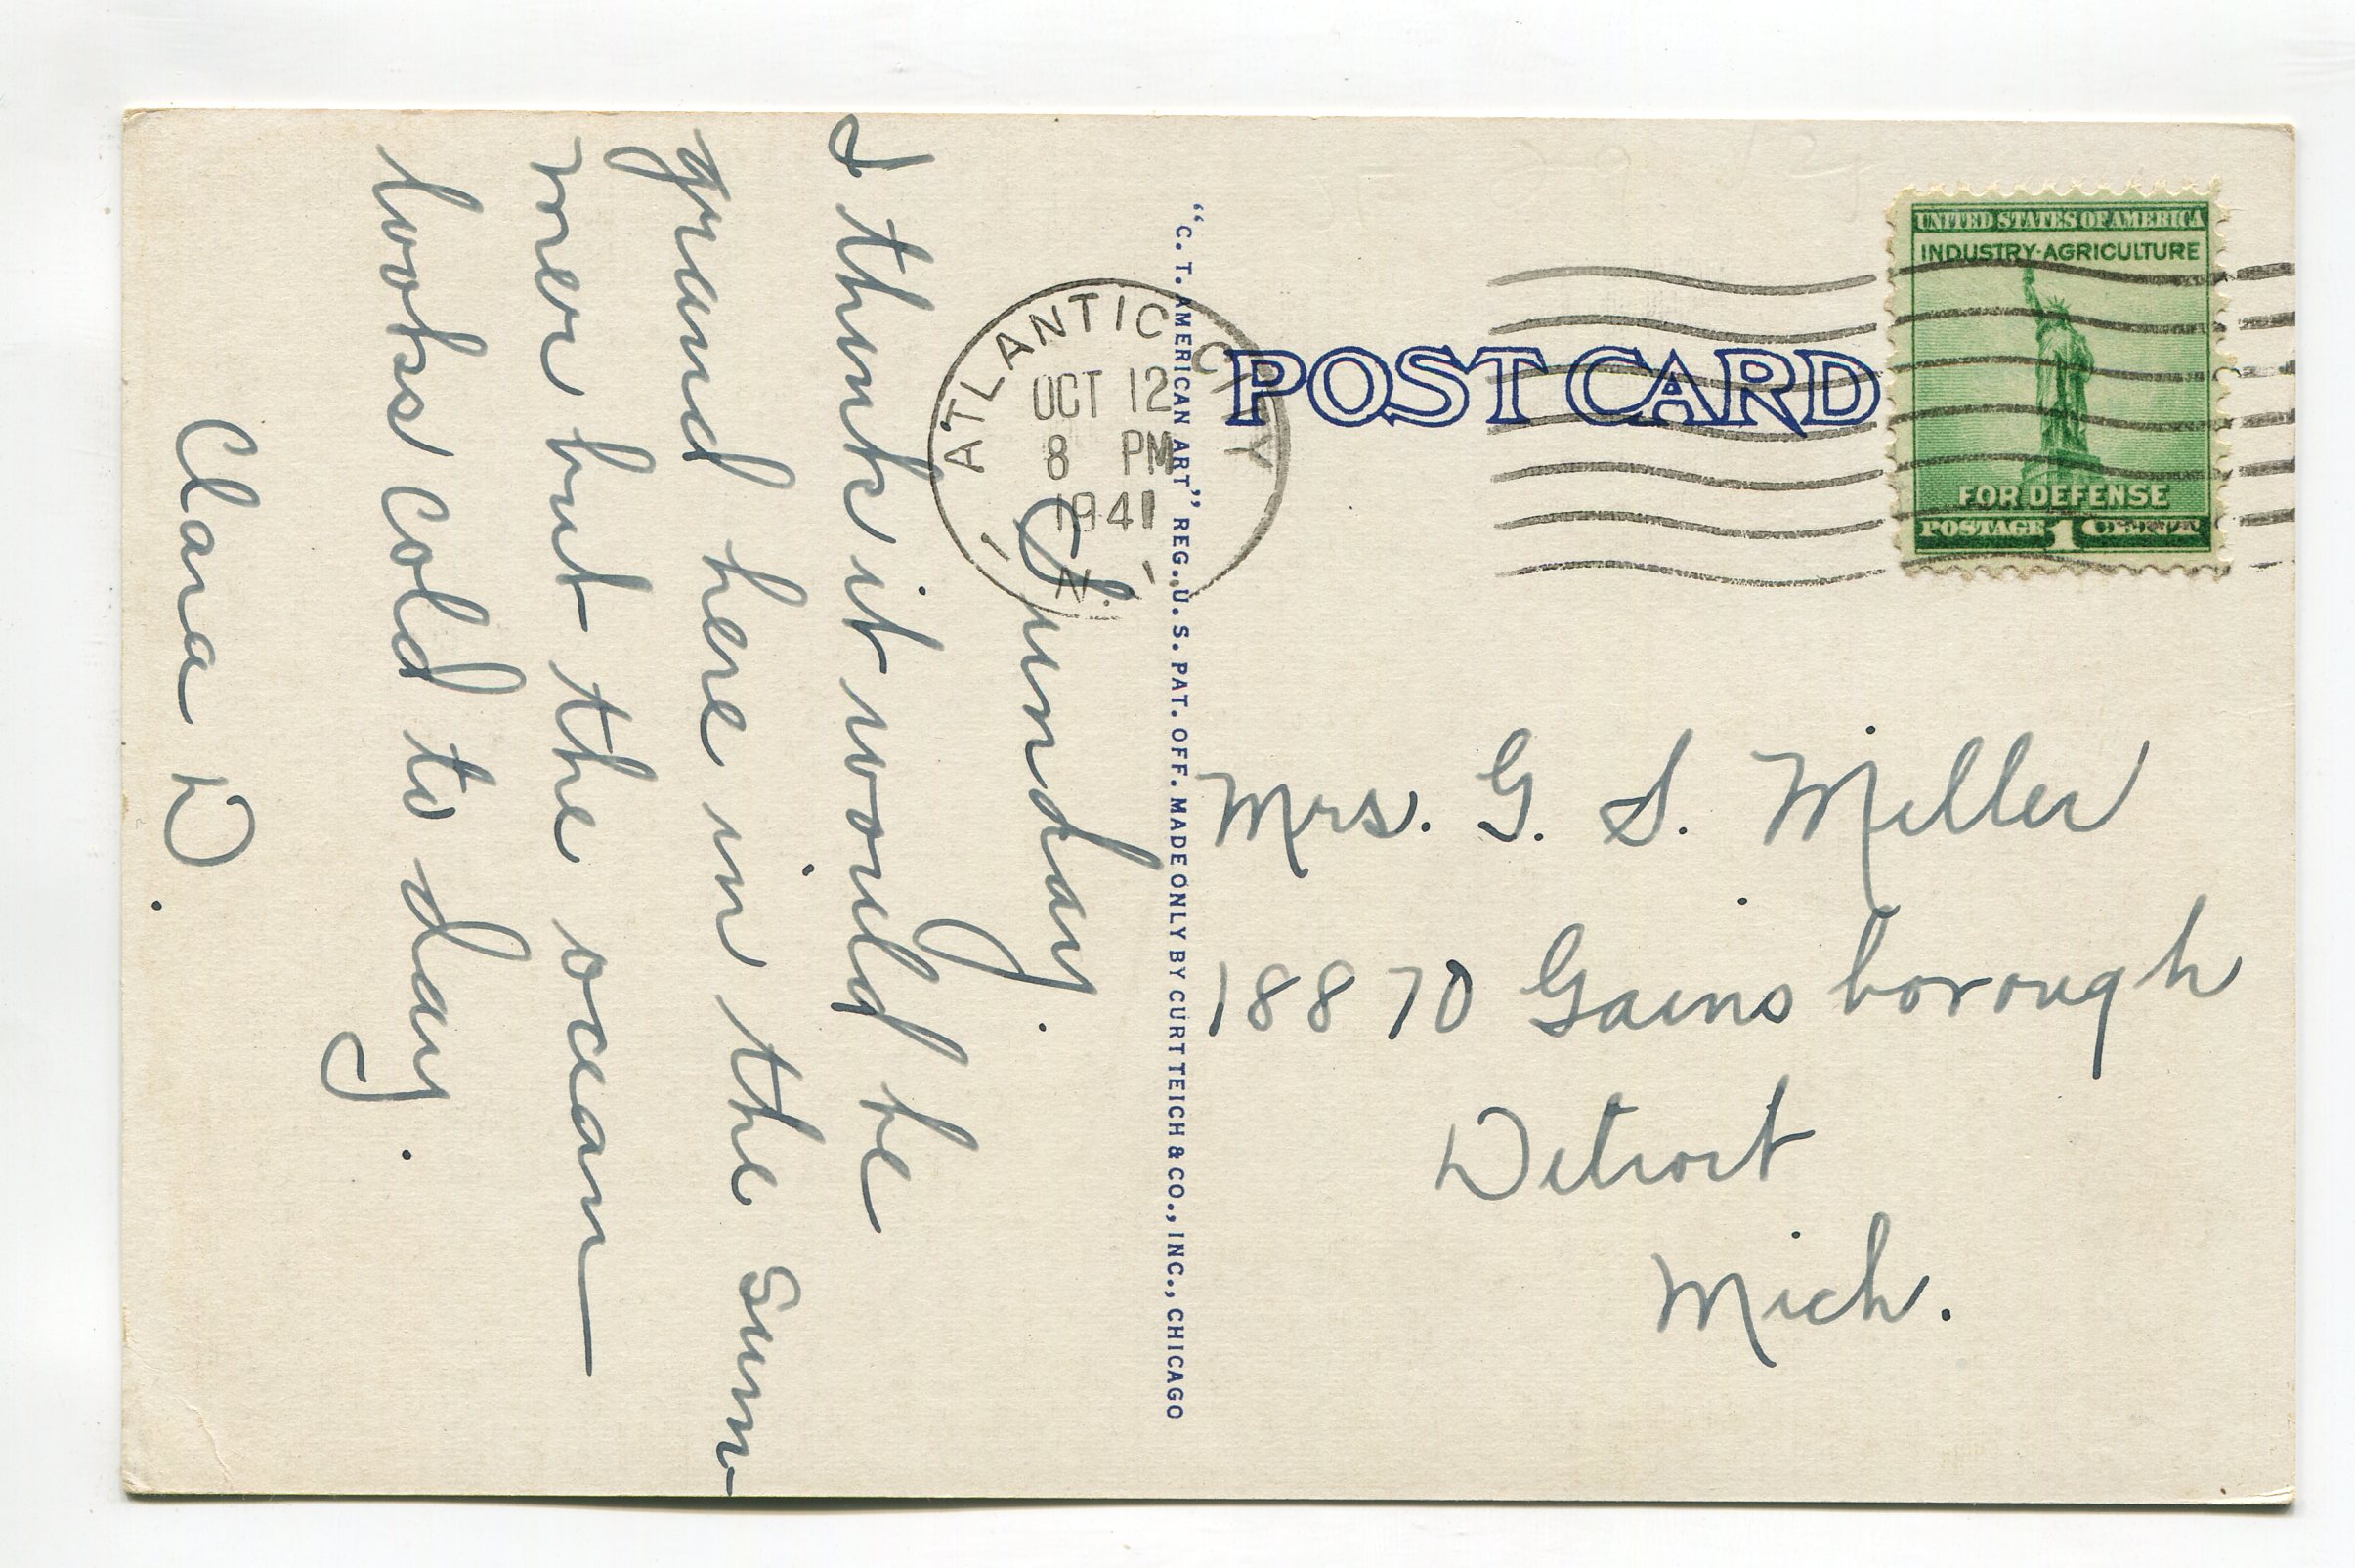 Sunday.
I think it would be
grand here in the sum
mer but the ocean
looks cold to day.
Clara D.
"C. T. AMERICAN ART" REG. U. S. PAT. OFF. MADE ONLY BY CURT TEICH & CO., INC., CHICAGO
ATLANTIC CITY
OCT 12
8 PM
1941
N.J.
POST CARD
UNITED STATES OF AMERICA
INDUSTRY·AGRICULTURE
FOR DEFENSE
POSTAGE 1 CENT
Mrs. G. S. Miller
18870 Gainsborough
Detroit
Mich.